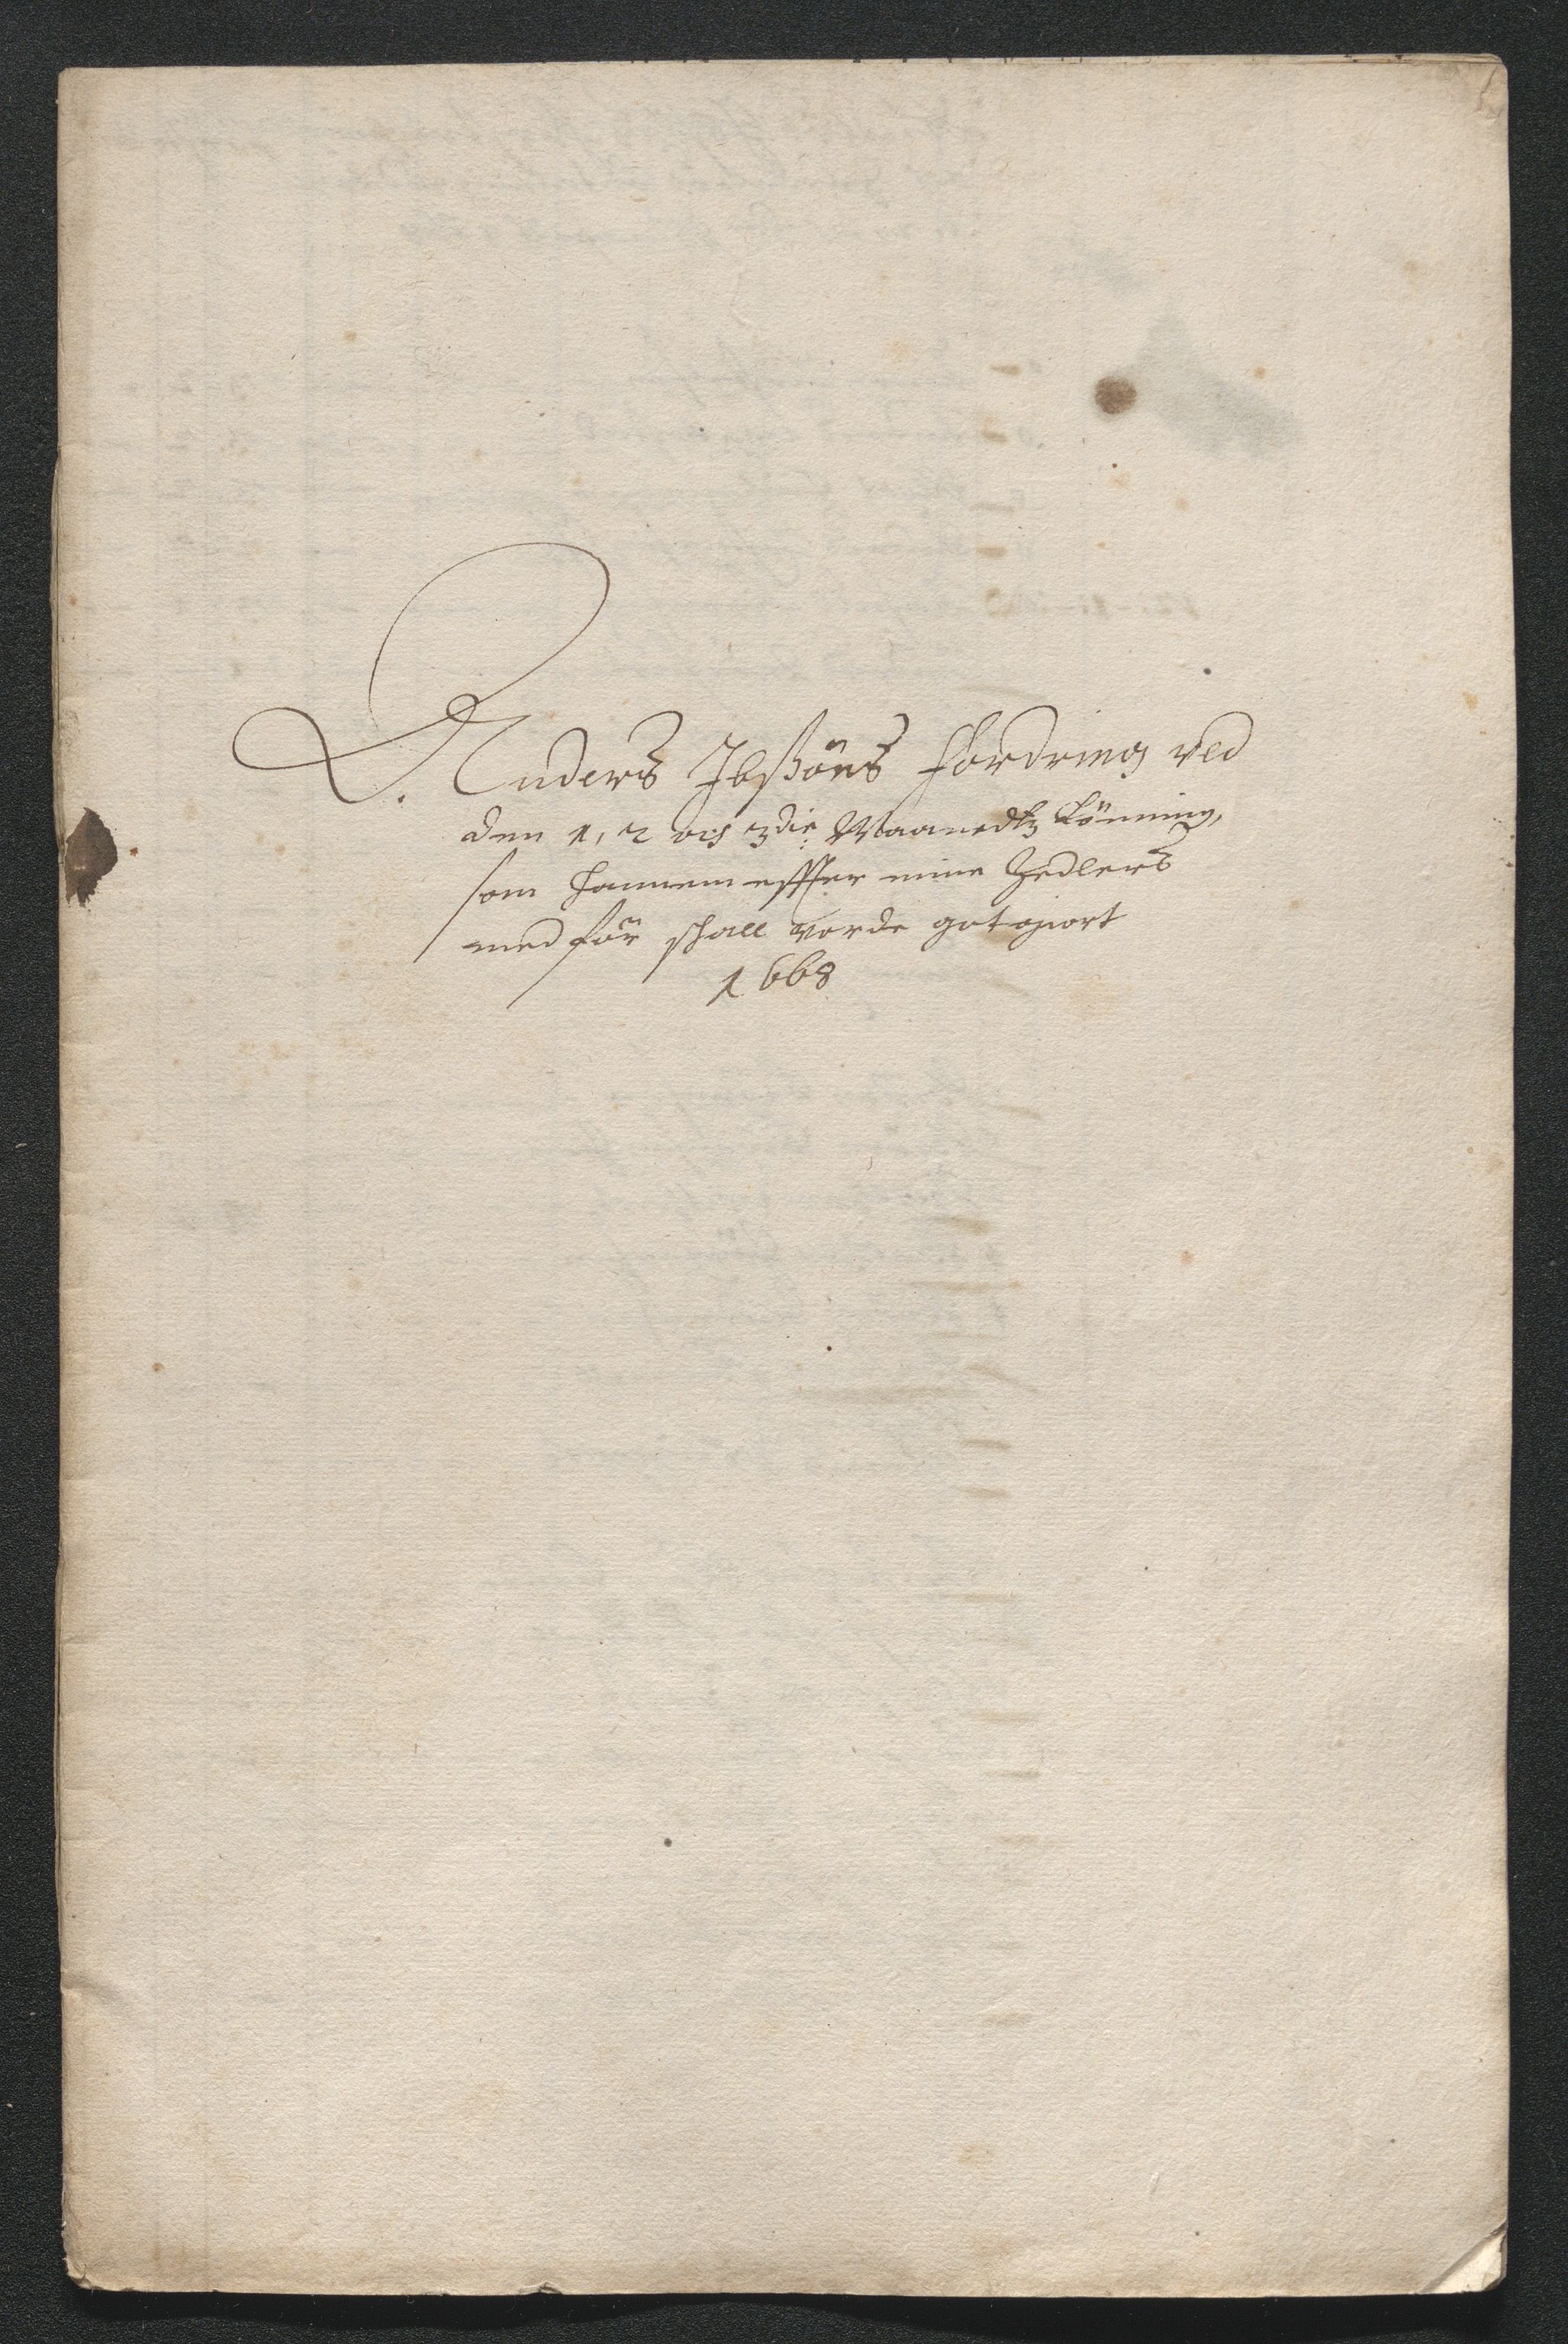 Anders Ibßöns fordring ved
den 1, 2 och 3die Maanedtz Lönning,
som hannem effter mine Zedlers
med för schall vorde gotgiort
1668